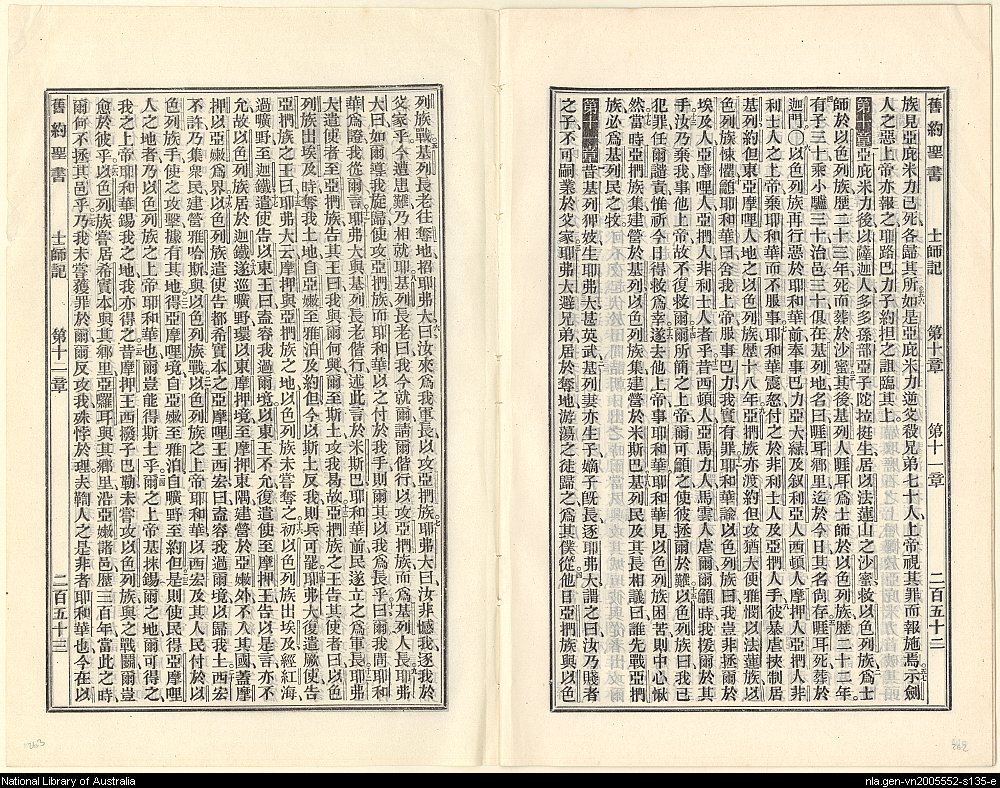 舊約聖書 士師記 第十章 第十一章 二百五十二
族見亞庇米力已死各歸其所如是亞庇米力逆父殺兄弟七十人上帝視其罪而報施焉示劍
人之惡上帝亦報之耶路巴力子約担之詛臨其上
第十章亞庇米力後以薩迦人多多孫部亞子陀拉挺生居以法蓮山之沙蜜救以色列族爲士
師於以色列族歷二十三年死而葬於沙蜜其後基列人睚耳爲士師於以色列族歷二十二年
有子三十乘小驢三十治邑三十俱在基列地名曰睚耳鄉里迄於今日其名尙存睚耳死葬於
迦門〇以色列族再行惡於耶和華前奉事巴力亞大綠及叙利亞人西頓人摩押人亞捫人非
利士人之上帝棄耶和華而不服事耶和華震怒付之於非利士人及亞捫人手彼暴虐挾制居
基列約但東亞摩哩人地之以色列族歷十八年亞捫族亦渡約但攻猶大便雅憫以法蓮以
色列族悚懼籲耶和華曰舍我上帝服事巴力我實有罪耶和華諭以色列族曰我豈非拯爾於
埃及人亞摩哩人亞捫人非利士人者乎昔西頓人亞馬力人馬雲人虐爾爾籲時我援爾於其
手汝乃棄我事他上帝故不復救爾爾所簡之上帝爾可籲之使彼拯爾於難以色列族曰我已
犯罪任爾譴責惟祈今日得救爲幸遂去他上帝事耶和華耶和華見以色列族困苦則中心惻
然當時亞捫族集建營於基列以色列族集建營於米斯巴基列民及其長相議曰誰先戰亞捫
族必爲基列民之牧
第十一章昔基列狎妓生耶弗大甚英武基列妻亦生子嫡子旣長逐耶弗大謂之曰汝乃賤者
之子不可嗣業於父家耶弗大避兄弟居於奪地游蕩之徒歸之爲其僕從他日亞捫族與以色
列族戰基列長老往奪地招耶弗大曰汝來爲我軍長以攻亞捫族耶弗大曰汝非憾我逐我於
父家乎今遭患難乃相就耶基列長老曰我今就爾請爾偕行以攻亞捫族而爲基列人長耶弗
大曰如爾導我旋歸使攻亞捫族而耶和華以之付於我手則爾其以我爲長乎曰爾我間耶和
華爲證我從爾言耶弗大與基列長老偕行述此言於米斯巴耶和華前民遂立之爲軍長耶弗
大遣使者至亞捫族告其王曰我與爾何與爾至斯土攻我易故亞捫族之王告其使者曰以色
列族出埃及時奪我土地自亞嫩至雅泊及約但今以斯土反我則兵可罷耶弗大復遣厥使告
亞捫族之王曰耶弗大云摩押與亞捫族之地以色列族未嘗奪之初以色列族出埃及經紅海
過曠野至迦鐵遣使告以東王曰盍容我過爾境以東王不允復遣使至摩押王告以是言亦不
允故以色列族居於迦鐵遂巡曠野環以東摩押境至摩押東隅建營於亞嫩外不入其國蓋摩
押以亞嫩爲界以色列族遣使告都希實本之亞摩哩王西宏曰盍容我過爾境以歸我土西宏
不許乃集衆民建營雅哈斯與以色列族戰以色列族之上帝耶和華以西宏及其人民付於以
色列族手使之攻擊據有其地得亞摩哩境自亞嫩至雅泊自曠野至約但是則使民得亞摩哩
人之地者乃以色列族之上帝耶和華也爾豈能得斯土乎爾之上帝基抹錫爾之地爾可得之
我之上帝耶和華錫我之地我亦得之昔摩押王西撥子巴勒未嘗攻以色列族與之戰鬭爾豈
愈於彼乎以色列族嘗居希實本與其鄉里亞囉耳與其鄉里沿亞嫩諸邑歷三百年當此之時
爾何不拯其邑乎乃我未嘗獲罪於爾爾反攻我殊悖於理夫鞫人之是非者耶和華也今在以
舊約聖書 士師記 第十一章 二百五十三
263
262
National Library of Australia
nla.gen-vn2005552-s135-e